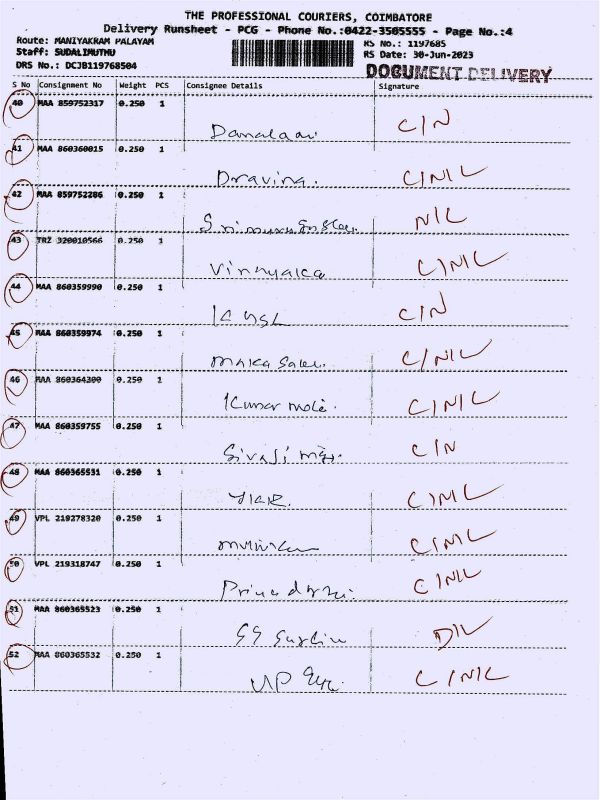 THE PROFESSIONAL COURIERS, COIMBATORE
Delivery Runsheet - PCG - Phone No.:0422-3505555 - Page No.:4
Route: MANIYAKRAM PALAYAM RS No.: 1197685
Staff: SUDALIMUTHU RS Date: 30-Jun-2023
DRS No.: DCJB119768504 DOCUMENT DELIVERY
S No Consignment No Weight PCS Consignee Details Signature
40 MAA 859752317 0.250 1
C/N
41 MAA 860360015 0.250 1
Dravina. C/NIL
42 MAA 859752286 0.250 1
NIL
43 TRZ 320010566 0.250 1
Vinayaka C/NIL
44 MAA 860359990 0.250 1
C/N
45 MAA 860359974 0.250 1
C/NIL
46 MAA 860364300 0.250 1
Kumar C/NIL
47 MAA 860359755 0.250 1
Sivaji C/N
48 MAA 860365531 0.250 1
C/NIL
49 VPL 219278320 0.250 1
C/NIL
50 VPL 219318747 0.250 1
C/NIL
51 MAA 860365523 0.250 1
SS
52 MAA 860365532 0.250 1
UP C/NIL